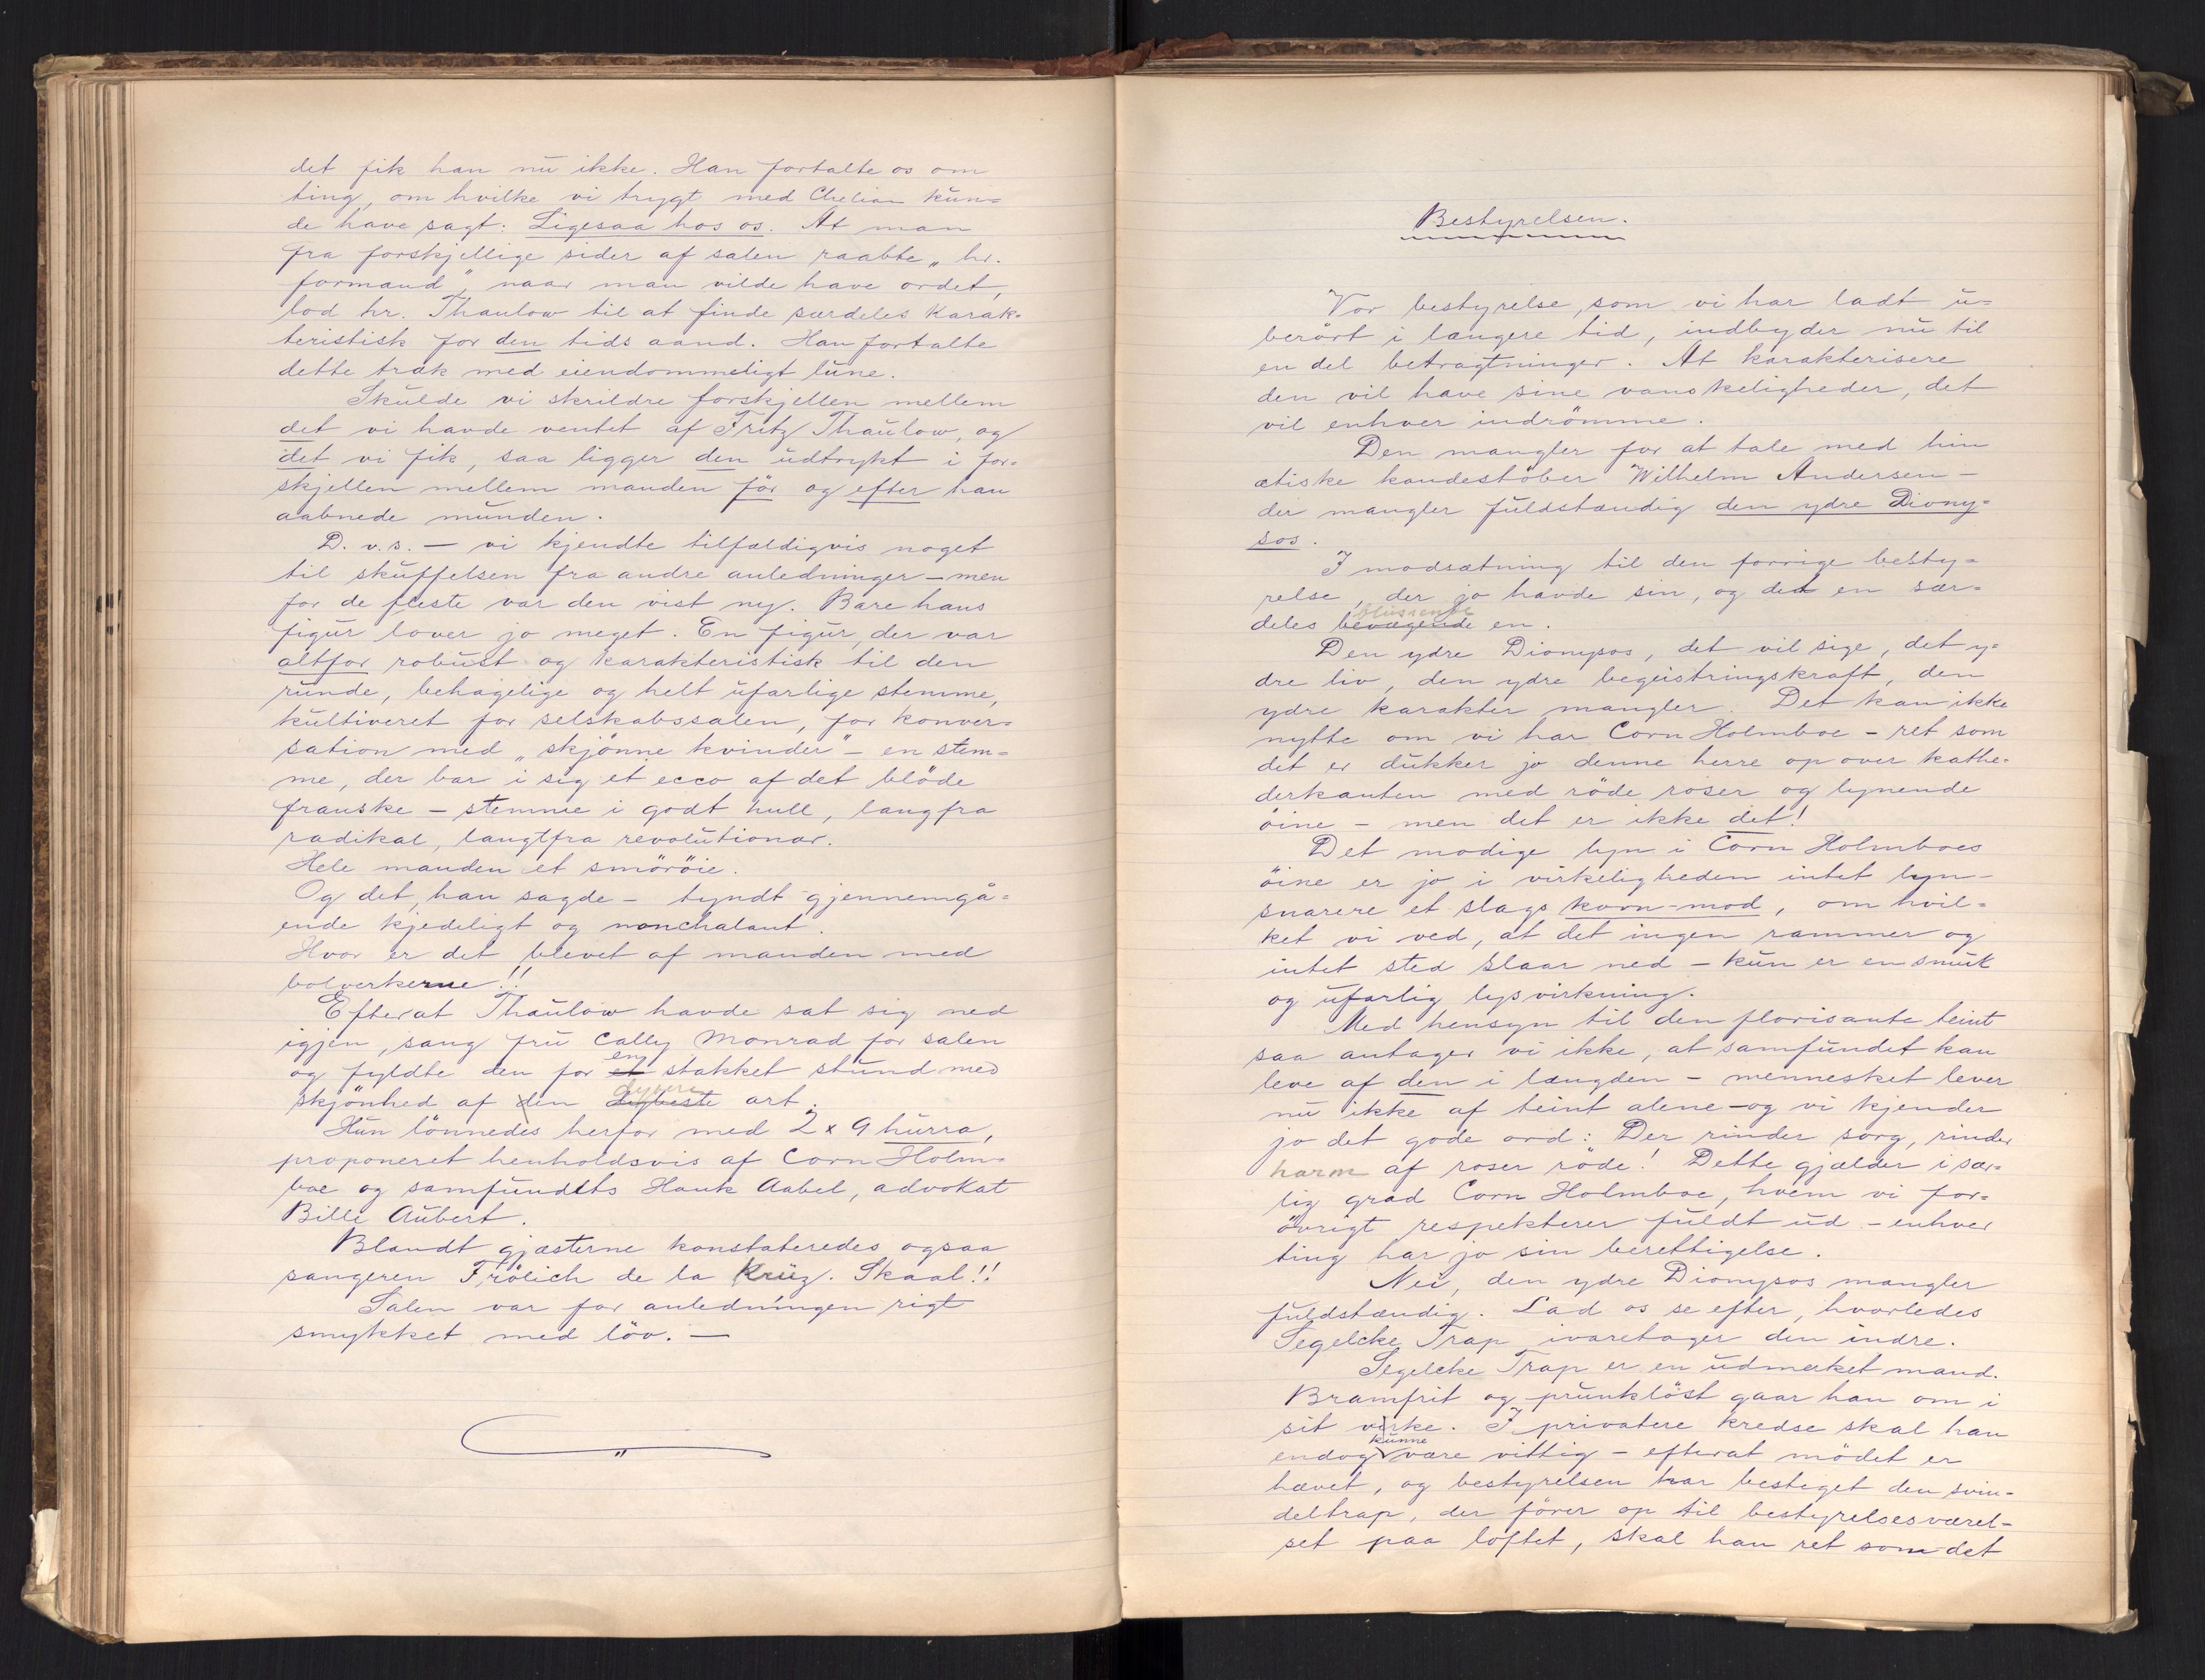 det fik han nu ikke. Han fortalte os om
ting, om hvilke vi trygt med Chelian kun=
de have sagt: Ligesaa hos os. At man
fra forskjellige sider af salen raabte „hr.
formand", naar man vilde have ordet,
lod hr. Thaulow til at finde særdeles karak=
teristisk for den tids aand. Han fortalte
dette træk med eiendommeligt lune.
Skulde vi skrildre forskjellen mellem
det vi havde ventet af Fritz Thaulow, og
det vi fik, saa ligger den udtrykt i for=
skjellen mellem manden før og efter han
aabnede munden.
D. v. s. — vi kjendte tilfældigvis noget
til skuffelsen fra andre anledninger — men
for de fleste var den vist ny. Bare hans
figur lover jo meget. En figur, der var
altfor robust og karakteristisk til den
runde, behagelige og helt ufarlige stemme,
kultiveret for selskabssalen, for konver=
sation med „skjönne kvinder" — en stem=
me, der bar i sig et ecco af det blöde
franske — stemme i godt hull, langfra
radikal, langtfra revolutionær.
Hele manden et smöröie.
Og det, han sagde — tyndt gjennemgå=
ende kjedeligt og nonchalant.
Hvor er det blevet af manden med
bolverkerne!!
Efterat Thaulow havde sat sig ned
igjen, sang fru Cally Monrad for salen
og fyldte den for et en stakket stund med
skjönhed af den dybeste dybere art.
Hun lönnedes herfor med 2 x 9 hurra,
proponeret henholdsvis af Corn Holm=
boe og samfundets Hauk Aabel, advokat
Bille Aubert.
Blandt gjæsterne konstateredes ogsaa
sangeren Frölich de la Kruz. Skaal!!
Salen var for anledningen rigt
smykket med löv. —
Bestyrelsen.
Vor bestyrelse, som vi har ladt u=
berört i længere tid, indbyder nu til
en del betragtninger. At karakterisere
den vil have sine vanskeligheder, det
vil enhver indrömme.
Den mangler for at tale med hin
ætiske kandestöber Wilhelm Andersen —
der mangler fuldstændig den ydre Diony=
sos.
I modsætning til den forrige besty=
relse, der jo havde sin, og det en sær=
deles bevægende blussende en.
Den ydre Dionysos, det vil sige, det y=
dre liv, den ydre begeistringskraft, den
ydre karakter mangler. Det kan ikke
nytte om vi har Corn Holmboe — ret som
det er dukker jo denne herre op over kathe=
derkanten med röde roser og lynende
öine — men det er ikke det!
Det modige lyn i Corn Holmboes
öine er jo i virkeligheden intet lyn —
snarere et slags korn-mod, om hvil=
ket vi ved, at det ingen rammer og
intet sted slaar ned — kun er en smuk
og ufarlig lysvirkning.
Med hensyn til den florisante teint
saa antager vi ikke, at samfundet kan
leve af den i længden — mennesket lever
nu ikke af teint alene — og vi kjender
jo det gode ord: Der rinder sorg, rinder
harm af roser röde! Dette gjælder i sær=
lig grad Corn Holmboe, hvem vi for=
övrigt respekterer fuldt ud — enhver
ting har jo sin berettigelse.
Nei, den ydre Dionysos mangler
fuldstændig. Lad os se efter, hvorledes
Segelcke Trap ivaretager den indre.
Segelcke Trap er en udmerket mand.
Bramfrit og prunklöst gaar han om i
sit virke. I privatere kredse skal han
endog kunne være vittig — efterat mödet er
hævet, og bestyrelsen har besteget den svin=
deltrap, der förer op til bestyrelsesværel=
set paa loftet, skal han ret som det